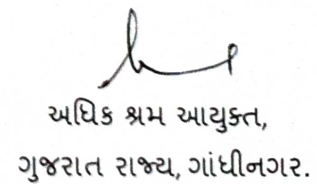 અધિક શ્રમ આયુક્ત,
ગુજરાત રાજ્ય, ગાંધીનગર.